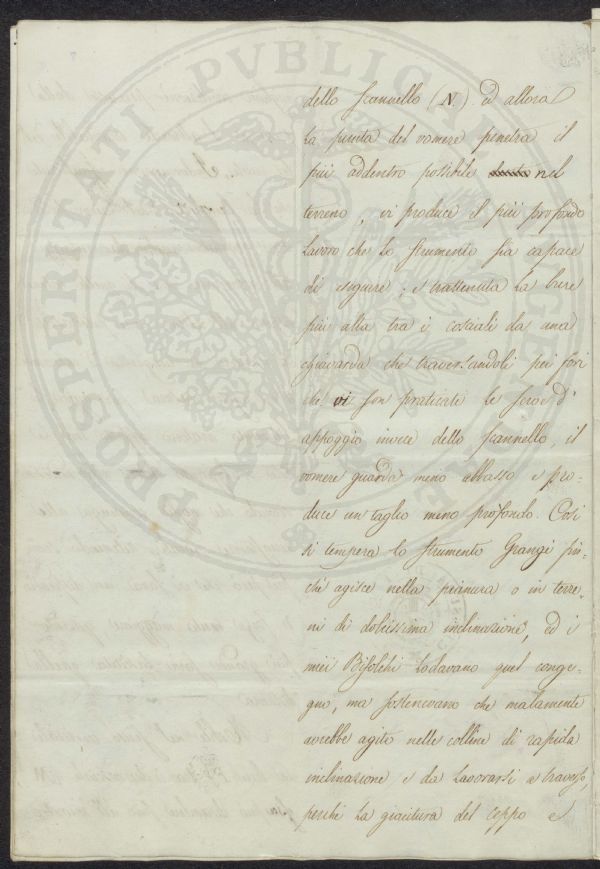 dello scannello (N). ed allora
la punta del vomere penetra il
più addentro possibile nel
terreno, vi produce il più profondo
lavoro che lo strumento sia capace
di esiguire; e trattenuta la bure
più alta tra i cosciali da una
chiavarda che traversandoli pei fori
che vi son praticati le serve d'
appoggio invece dello scannello, il
vomere guarda meno abbasso e pro-
duce un taglio meno profondo. Così
si tempera lo strumento Grangé fin-
ché agisce nella pianura o in terre-
ni di dolcissima inclinazione, ed i
miei Bifolchi lodavano quel conge-
gno, ma sostenevano che malamente
avrebbe agito nelle colline di rapida
inclinazione e da lavorarsi a traverso,
perché la giacitura del ceppo e
PROSPERITATI PUBLICAE AUGENDAE